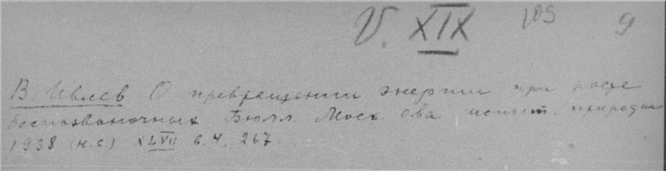 V. XIX 105 9
В Ивлев О превращении энергии при росте
беспозвоночных Бюлл. Моск. Ова испыт. природы
1938 (н.с.) XLVII в.4. 267.